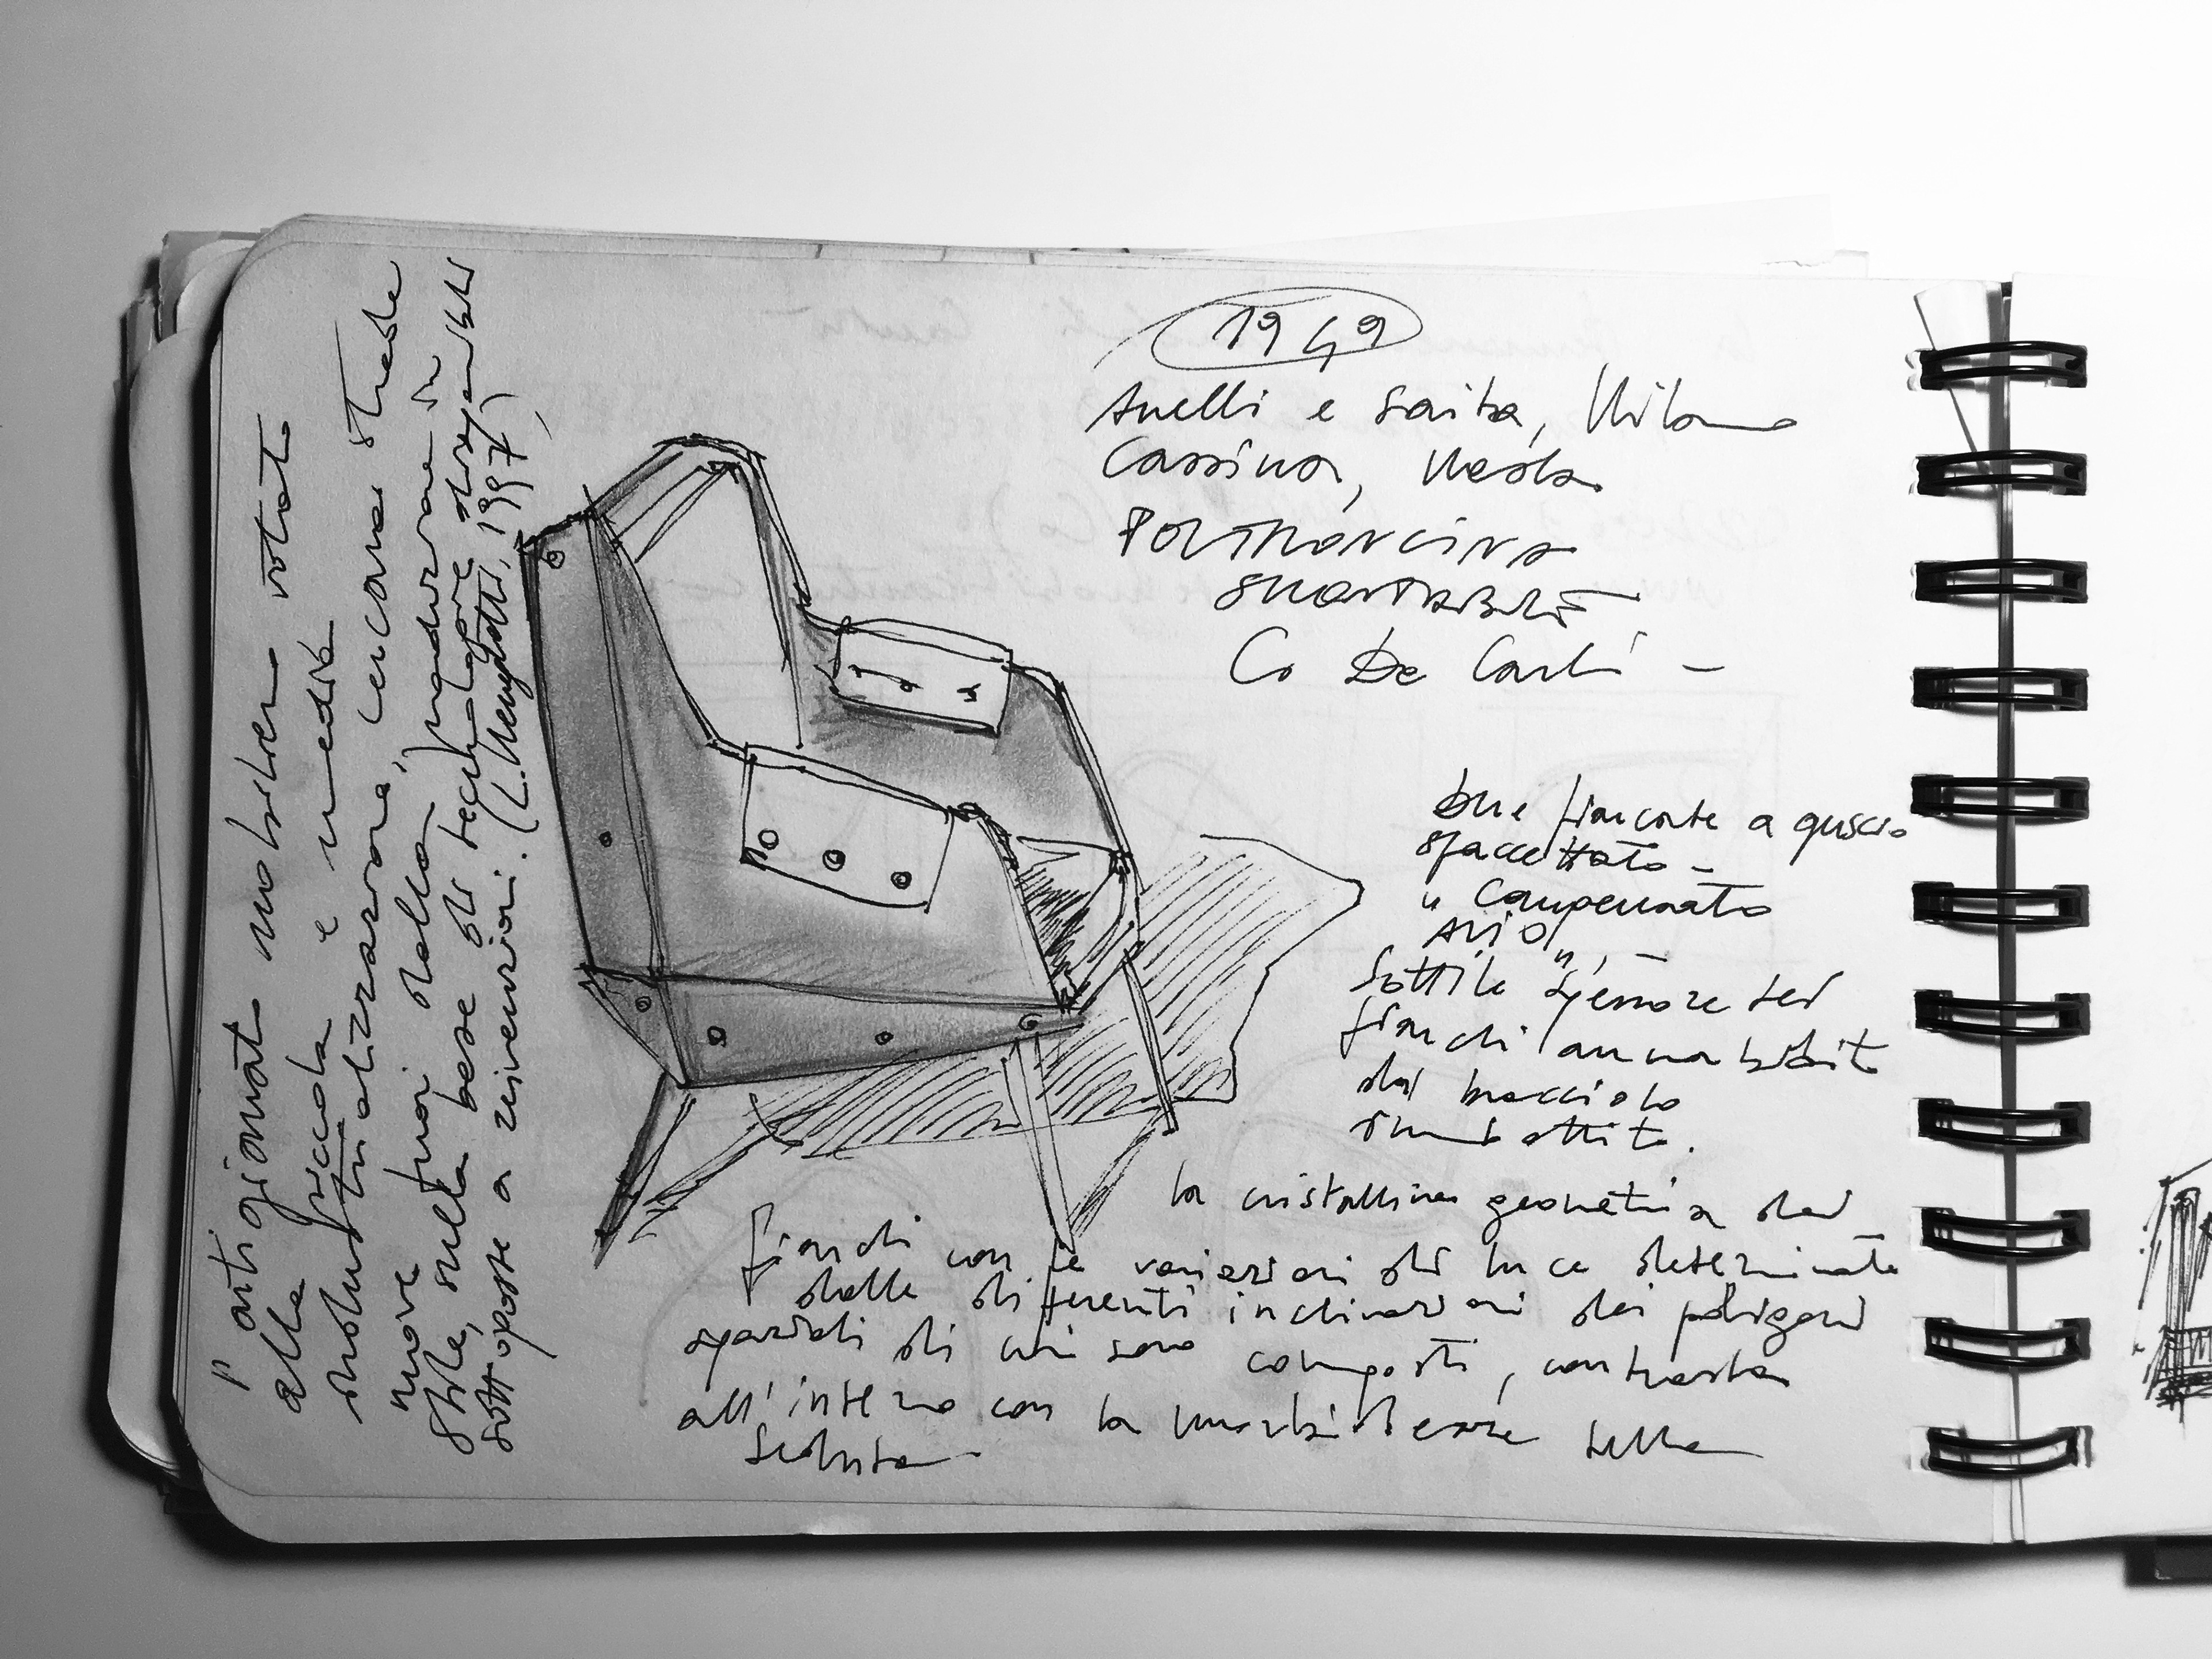 1949
Anelli e Saita, Milano
Cassina, Meda
Poltroncina
smontabile
Co De Carli -
Due fiancate a guscio
sfaccettato -
"compensato
Avio",
sottile spessore dei
fianchi ammorbidito
dal bracciolo
imbottito.
la cristallina geometria dei
fianchi con le variazioni di luce determinate
dalle differenti inclinazioni dei poligoni
spaziali di cui sono composti, contrasta
all'interno con la morbidezza della
seduta.
l'artigianato mobiliero votato
alla piccola e media
industrializzazione, cercava strade
nuove fuori dalla produzione in
stile, sulla base di tecnologie disponibili
sottoposte a reinvenzioni. (L. 1997)